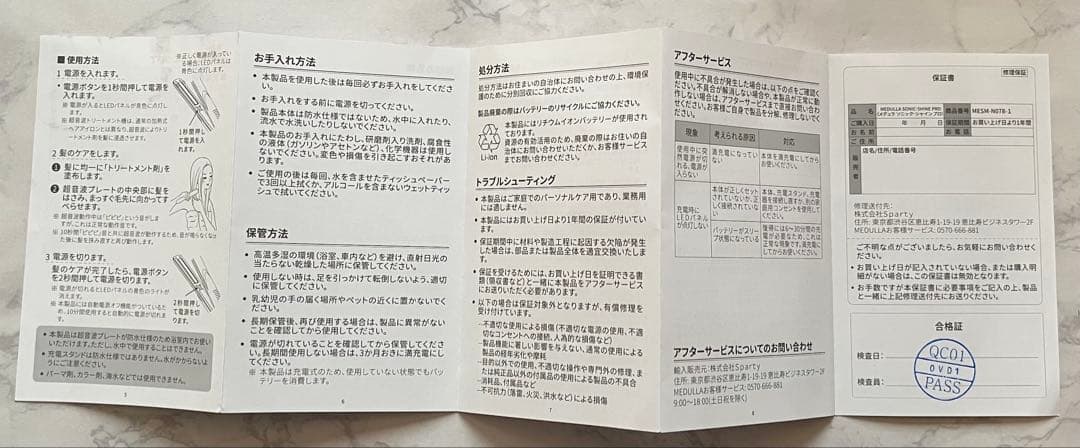 ■ 使用方法
1 電源を入れます。
• 電源ボタンを1秒間押して電源を入れます。
※ 電源が入るとLEDパネルが青色に点灯します。
※ 超音波トリートメント機は、通常の加熱式ヘアアイロンとは異なり、超音波によりトリートメント剤を髪に浸透させます。
※正しく電源が入っている場合、LEDパネルは青色に点灯します。
1秒間押して電源を入れます。
2 髪のケアをします。
❶ 髪に均一に「トリートメント剤」を塗布します。
❷ 超音波プレートの中央部に髪をはさみ、まっすぐ毛先に向かってすべらせます。
※ 超音波動作中は「ピピピ」という音がしますが、これは正常な動作音です。
※ 10秒間「ピピピ」音と共に超音波が動作するため、音が鳴らなくなった後に髪を挟み直すと再び動作します。
3 電源を切ります。
髪のケアが完了したら、電源ボタンを2秒間押して電源を切ります。
※ 電源が切れるとLEDパネルの青色のライトが消えます。
※ 本製品には自動電源オフ機能がついているため、10分間使用すると自動的に電源が切れます。
2秒間押して電源を切ります。
• 本製品は超音波プレートが防水仕様のため浴室内でお使いいただけます。ただし、水中で使用することはできません。
• 充電スタンドは防水仕様ではありません。水がかからないようにご注意ください。
• パーマ剤、カラー剤、海水などでは使用できません。
5
お手入れ方法
• 本製品を使用した後は毎回必ずお手入れをしてください。
• お手入れをする前に電源を切ってください。
• 製品本体は防水仕様ではないため、水中に入れたり、流水で水洗いしたりしないでください。
• 本製品のお手入れにたわし、研磨剤入り洗剤、腐食性の液体(ガソリンやアセトンなど)、化学機器は使用しないでください。変色や損傷を引き起こすおそれがあります。
• ご使用の後は毎回、水を含ませたティッシュペーパーで3回以上拭くか、アルコールを含まないウェットティッシュで拭いてください。
保管方法
• 高温多湿の環境(浴室、車内など)を避け、直射日光の当たらない乾燥した場所に保管してください。
• 使用しない時は、足を引っかけて転倒しないよう、適切に保管してください。
• 乳幼児の手の届く場所やペットの近くに置かないでください。
• 長期保管後、再び使用する場合は、製品に異常がないことを確認してから使用してください。
• 電源が切れていることを確認してから保管してください。長期間使用しない場合は、3か月おきに満充電にしてください。
※ 本製品は充電式のため、使用していない状態でもバッテリーを消費します。
6
処分方法
処分方法はお住まいの自治体にお問い合わせの上、環境保護のために分別回収にご協力ください。
製品廃棄の際はバッテリーのリサイクルにご協力ください。
Li-ion
本製品にはリチウムイオンバッテリーが使用されております。
資源の有効活用のため、廃棄の際はお住いの自治体にお問い合わせいただくか、お客様サービスまでお問い合わせください。
トラブルシューティング
• 本製品はご家庭でのパーソナルケア用であり、業務用には適しません。
• 本製品にはお買い上げ日より1年間の保証が付いています。
• 保証期間中に材料や製造工程に起因する欠陥が発生した場合は、部品または製品全体を適宜交換いたします。
• 保証を受けるためには、お買い上げ日を証明できる書類(領収書など)と一緒に本製品をアフターサービスにお送りいただく必要があります。
• 以下の場合は保証対象外となりますが、有償修理を受け付けています。
-不適切な使用による損傷(不適切な電源の使用、不適切なコンセントへの接続、人為的な損傷など)
-製品機能に著しい影響を与えない、通常の使用による製品の経年劣化や摩耗
-目的以外での使用、不適切な操作や専門外の修理、または純正品以外の付属品の使用による製品の不具合
-消耗品、付属品など
-不可抗力(落雷、火災、洪水など)による損傷
7
アフターサービス
使用中に不具合が発生した場合は、以下の点をご確認ください。不具合が解消しない場合や、本製品が正常に動作しない場合は、アフターサービスまで直接お問い合わせください。お客様ご自身で製品を分解、修理しないでください。
現象 考えられる原因 対応
使用中に突然電源が切れる、電源が入らない
満充電になっていない
本体を満充電にしてからお使いください。
充電時にLEDパネルが点灯しない
本体が正しくセットされていないか、正しく接続されていない
本体、充電スタンド、充電器を接続し直すか、別の家庭用コンセントを使用してください。
バッテリーがスリープ状態になっている
復帰には6~30分間の充電が必要なため、これは正常な現象です。満充電にしてからお使いください。
アフターサービスについてのお問い合わせ
輸入販売元:株式会社Sparty
住所: 東京都渋谷区恵比寿1-19-19 恵比寿ビジネスタワー2F
MEDULLAお客様サービス: 0570-666-881
9:00~18:00(土日祝を除く)
8
保証書
修理保証
品名 MEDULLA SONIC-SHINE PRO (メデュラ ソニック・シャイン プロ) 商品番号 MESM-N078-1
ご購入日 年 月 日 保証期間 お買い上げ日より1年間
お名前 お電話
ご住所
販売者 店名/住所/電話番号
修理送付先:
株式会社Sparty
住所: 東京都渋谷区恵比寿1-19-19 恵比寿ビジネスタワー2F
MEDULLAお客様サービス: 0570-666-881
ご不明な点がございましたら、お気軽にお問い合わせください。
• お買い上げ日が記入されていない場合、または購入明細がない場合は、この保証書は無効となります。
• お手数ですが本保証書に必要事項をご記入の上、製品と一緒に上記修理送付先にお送りください。
合格証
検査日:
検査員:
QC01
OVD1
PASS